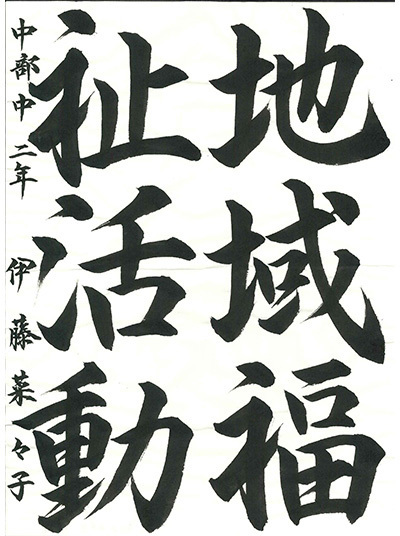 地域福
祉活動
中部中 二年 伊藤菜々子